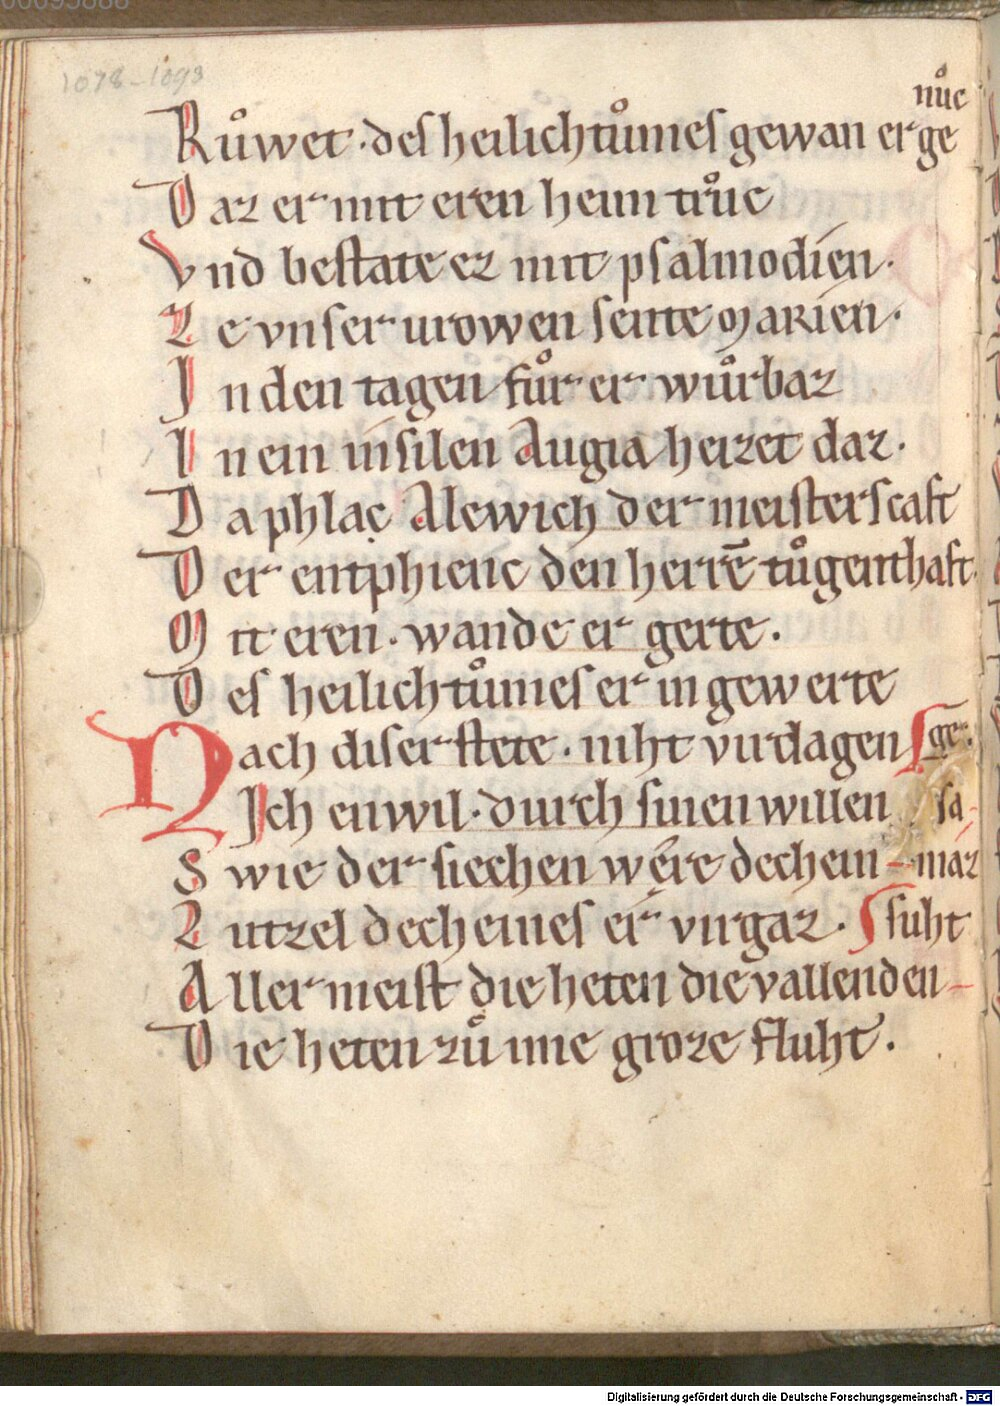 1078-1093
nůc
Růwet · des heilichtůmes gewan er ge
Daz er mit eren heim trůc
Vnd bestate ez mit psalmodien ·
Ze vnser urowen sente Marien ·
In den tagen fůr er wůrbaz
In ein insilen Augia heizet daz ·
Da phlac Alewich der meisterscaft
Der entphienc den herrē tůgenthaft
Mit eren · wande er gerte ·
Des heilichtůmes er in gewerte
Nach diser stete · niht virdagen ge
Ich enwil · durch sinen willen sa-
Swie der siechen wére dechein - maz
Lutzel decheines er virgaz · suht
Aller meist die heten die vallenden -
Die heten zů ime groze fluht ·
Digitalisierung gefördert durch die Deutsche Forschungsgemeinschaft - DFG